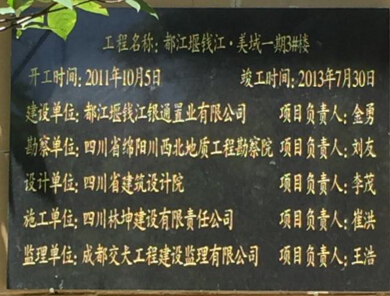 工程名称: 都江堰钱江·美域一期3#楼
开工时间: 2011年10月5日 竣工时间: 2013年7月30日
建设单位: 都江堰钱江银通置业有限公司 项目负责人: 金勇
勘察单位: 四川省绵阳川西北地质工程勘察院 项目负责人: 刘友
设计单位: 四川省建筑设计院 项目负责人: 李茂
施工单位: 四川林坤建设有限责任公司 项目负责人: 崔洪
监理单位: 成都交大工程建设监理有限公司 项目负责人: 王浩